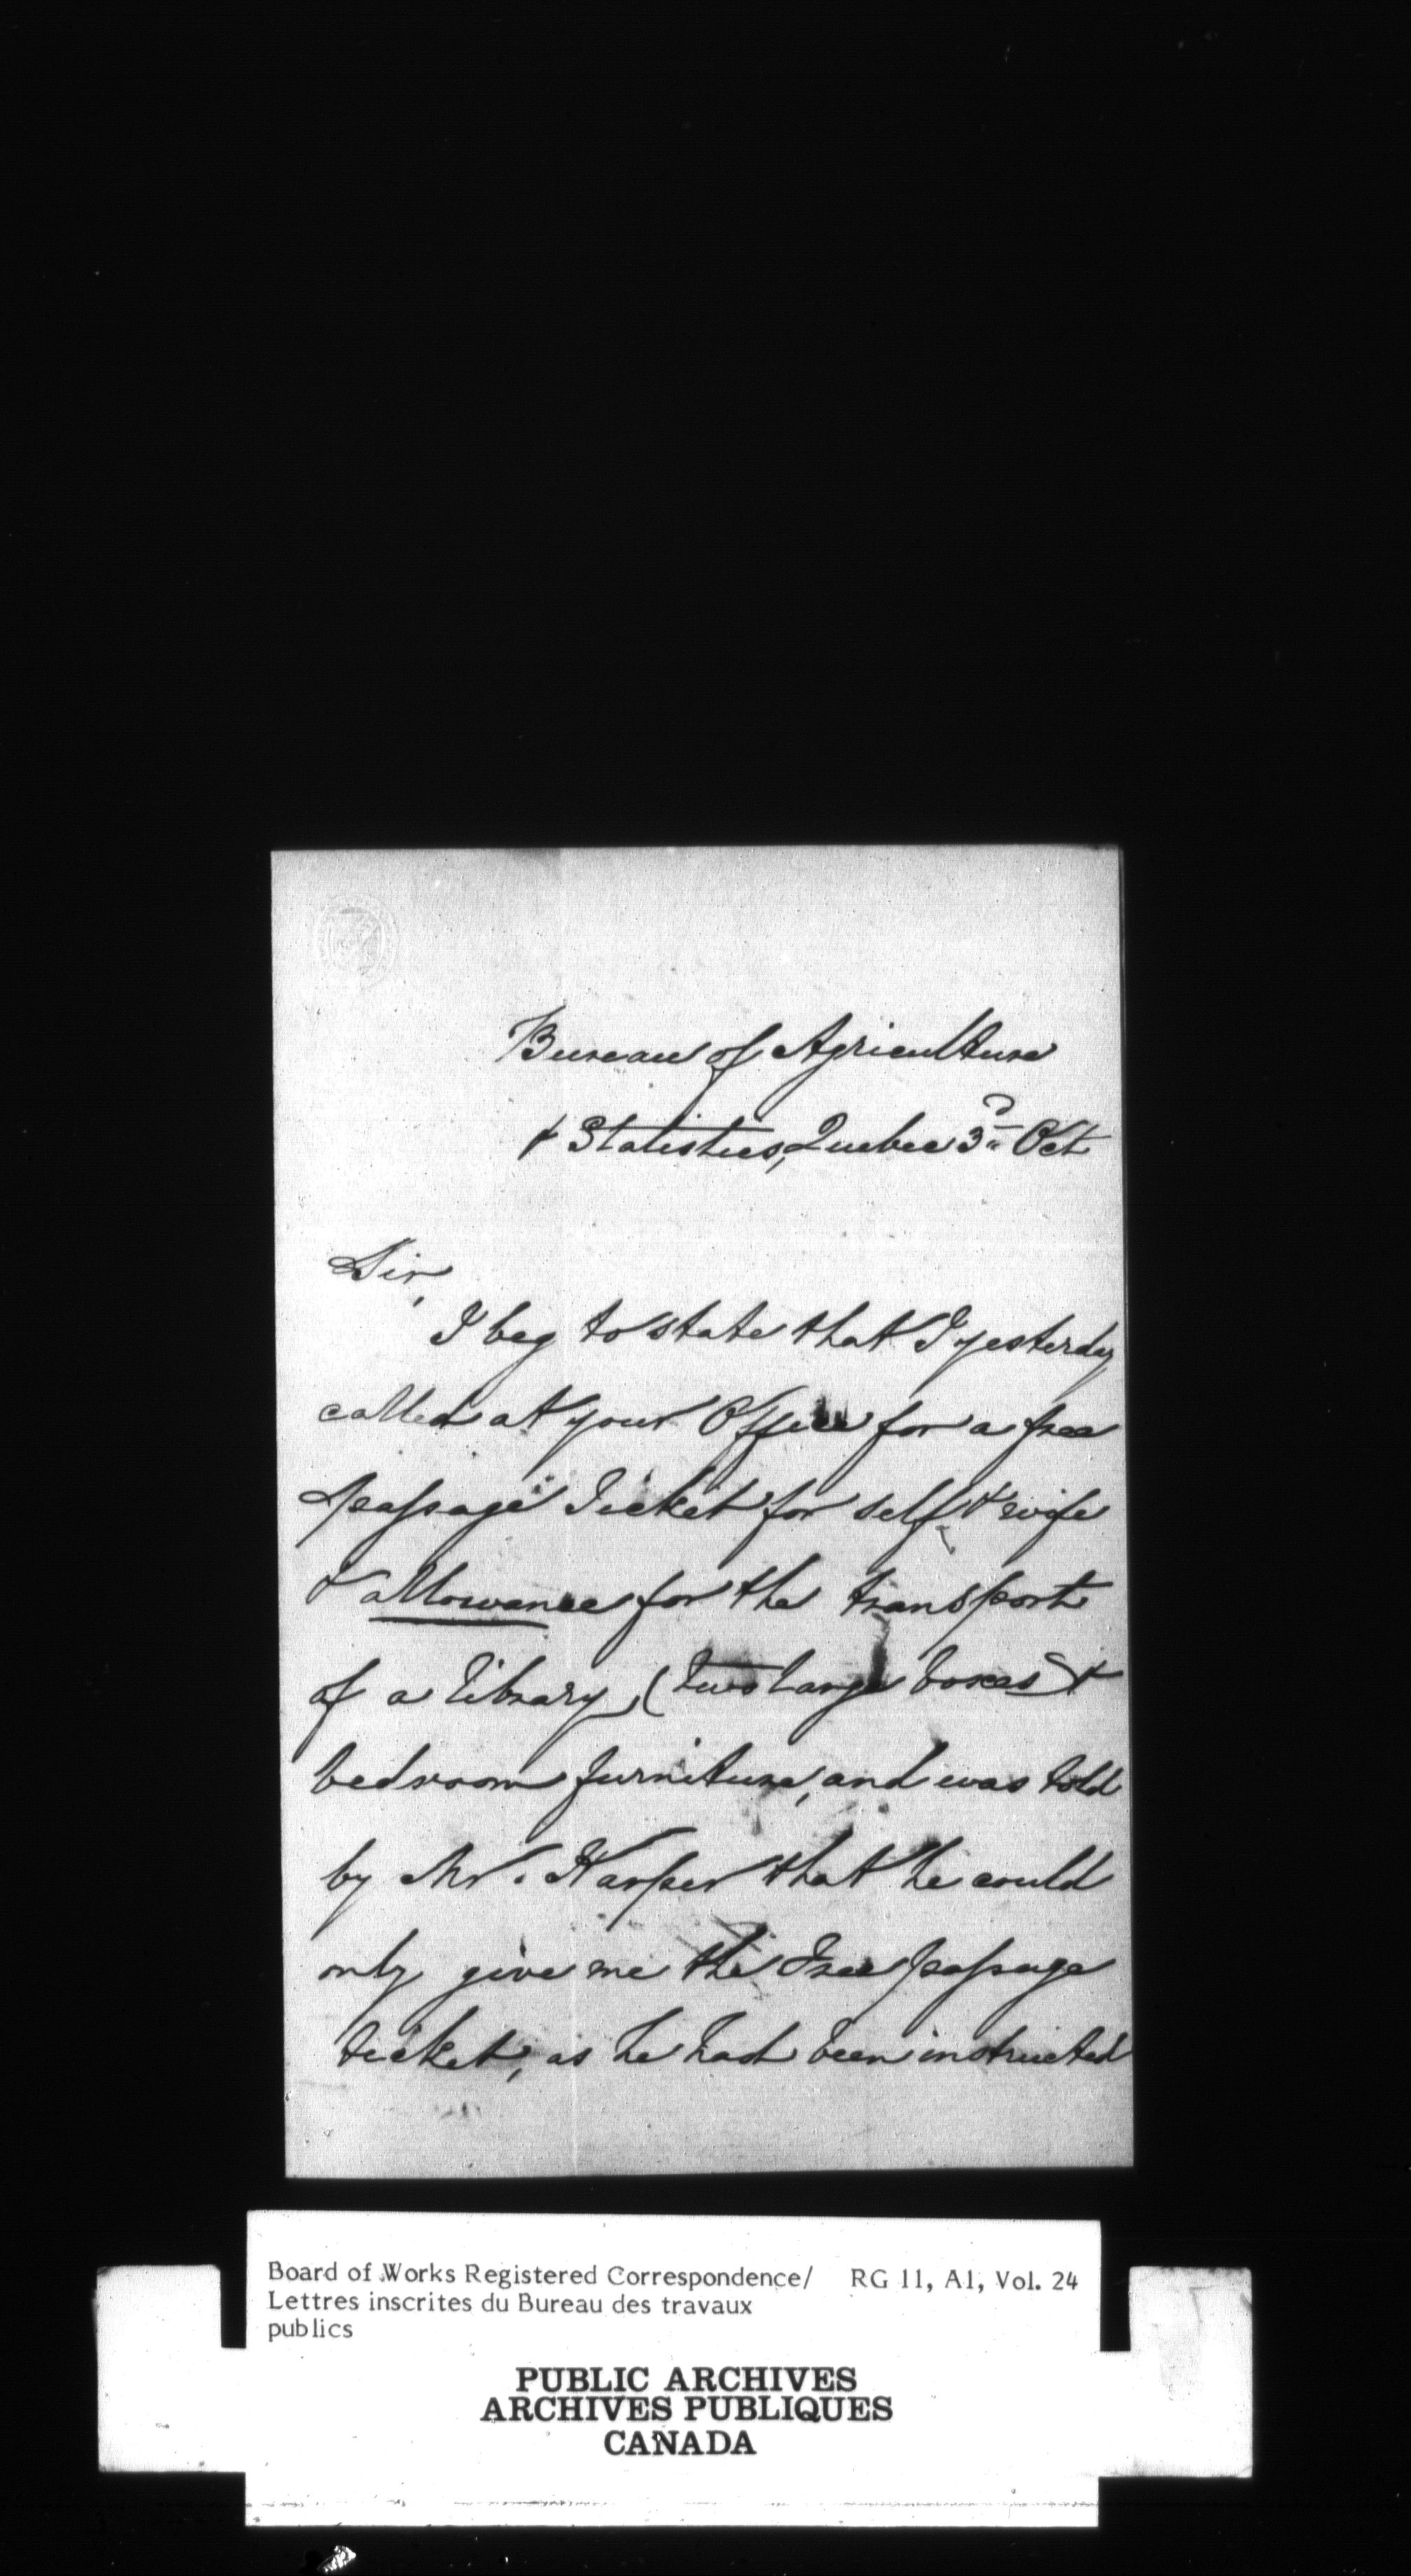 Bureau of Agriculture
& Statistics, Quebec 3d Oct
Sir,
I beg to state that I yesterday
called at your Office for a free
passage Ticket for self & wife
& allowance for the transport
of a library, (two large boxes) &
bedroom furniture, and was told
by Mr. Harper that he could
only give me the Free passage
ticket, as he had been instructed
Board of Works Registered Correspondence/ RG 11, A1, Vol. 24
Lettres inscrites du Bureau des travaux
publics
PUBLIC ARCHIVES
ARCHIVES PUBLIQUES
CANADA